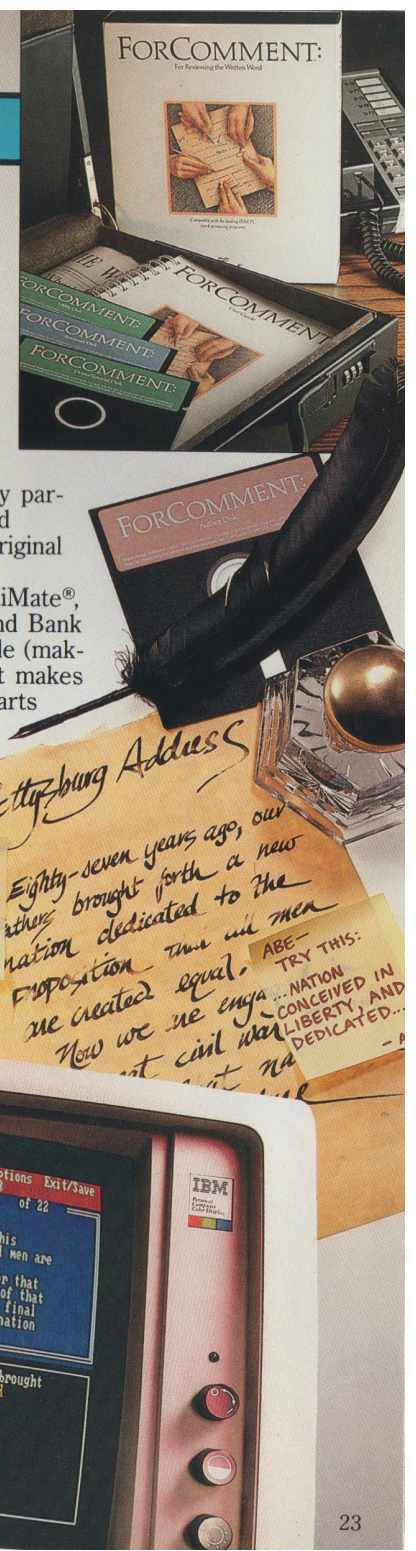 FORCOMMENT:
For Reviewing the Written Word
Compatible with the leading IBM PC
word-processing programs
FORCOMMENT
User's Guide
FORCOMMENT:
FORCOMMENT:
Reviewer Disk
FORCOMMENT:
Demo/Tutorial Disk
y par-
d
riginal
iMate®,
nd Bank
le (mak-
t makes
arts
FORCOMMENT:
Author Disk
ettysburg Address
Eighty-seven years ago, our
athers brought forth a new
nation dedicated to the
proposition that all men
are created equal.
Now we are enga
civil war
na
ABE—
TRY THIS:
...NATION
CONCEIVED IN
LIBERTY, AND
DEDICATED...
– A
ptions Exit/Save
of 22
his
l men are
r that
of that
final
nation
brought
IBM
Personal
Computer
Color Display
23